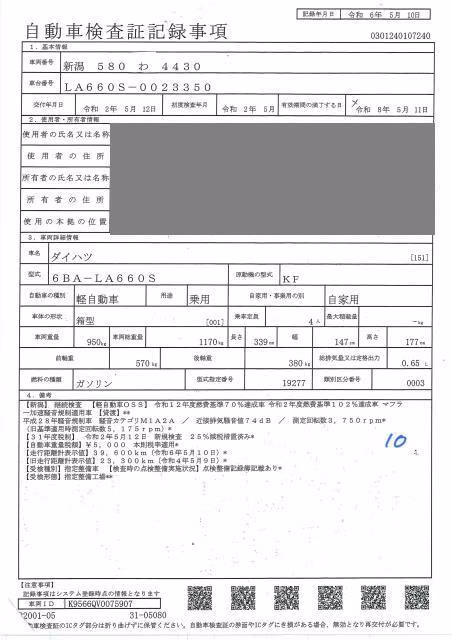 記録年月日 令和 6年 5月 10日
自動車検査証記録事項
0301240107240
1. 基本情報
車両番号 新潟 580 わ 4430
車台番号 LA660S-0023350
交付年月日 令和 2年 5月 12日 初度検査年月 令和 2年 5月 有効期間の満了する日 令和 8年 5月 11日
2. 使用者・所有者情報
使用者の氏名又は名称
使用者の住所
所有者の氏名又は名称
所有者の住所
使用の本拠の位置
3. 車両詳細情報
車名 ダイハツ [151]
型式 6BA-LA660S 原動機の型式 KF
自動車の種別 軽自動車 用途 乗用 自家用・事業用の別 自家用
車体の形状 箱型 [001] 乗車定員 4人 最大積載量 -kg
車両重量 950kg 車両総重量 1170kg 長さ 339cm 幅 147cm 高さ 177cm
前軸重 570kg 後軸重 380kg 総排気量又は定格出力 0.65 L
燃料の種類 ガソリン 型式指定番号 19277 類別区分番号 0003
4. 備考
【新潟】 継続検査 【軽自動車OSS】 令和12年度燃費基準70%達成車 令和2年度燃費基準102%達成車 マフラ
ー加速騒音規制適用車 【貸渡】**
平成28年騒音規制車 騒音カテゴリM1A2A / 近接排気騒音値74dB / 測定回転数3,750rpm**
(旧基準適用時測定回転数5,175rpm)**
【31年度税制】 令和2年5月12日 新規検査 25%減税措置済み*
【自動車重量税額】¥5,000 本則税率適用*
【走行距離計表示値】39,600km(令和6年5月10日)*
(旧走行距離計表示値)23,300km(令和4年5月9日)*
【受検種別】指定整備車 【検査時の点検整備実施状況】点検整備記録簿記載あり*
【受検形態】指定整備工場**
10
【注意事項】
記録事項はシステム登録時点の情報となります
車両ID K9566QV0075907
2001-05 31-05080
車検査証のICタグ部分は折り曲げずに保管ください。自動車検査証の券面やICタグにき損がある場合、無効となり再交付が必要です。